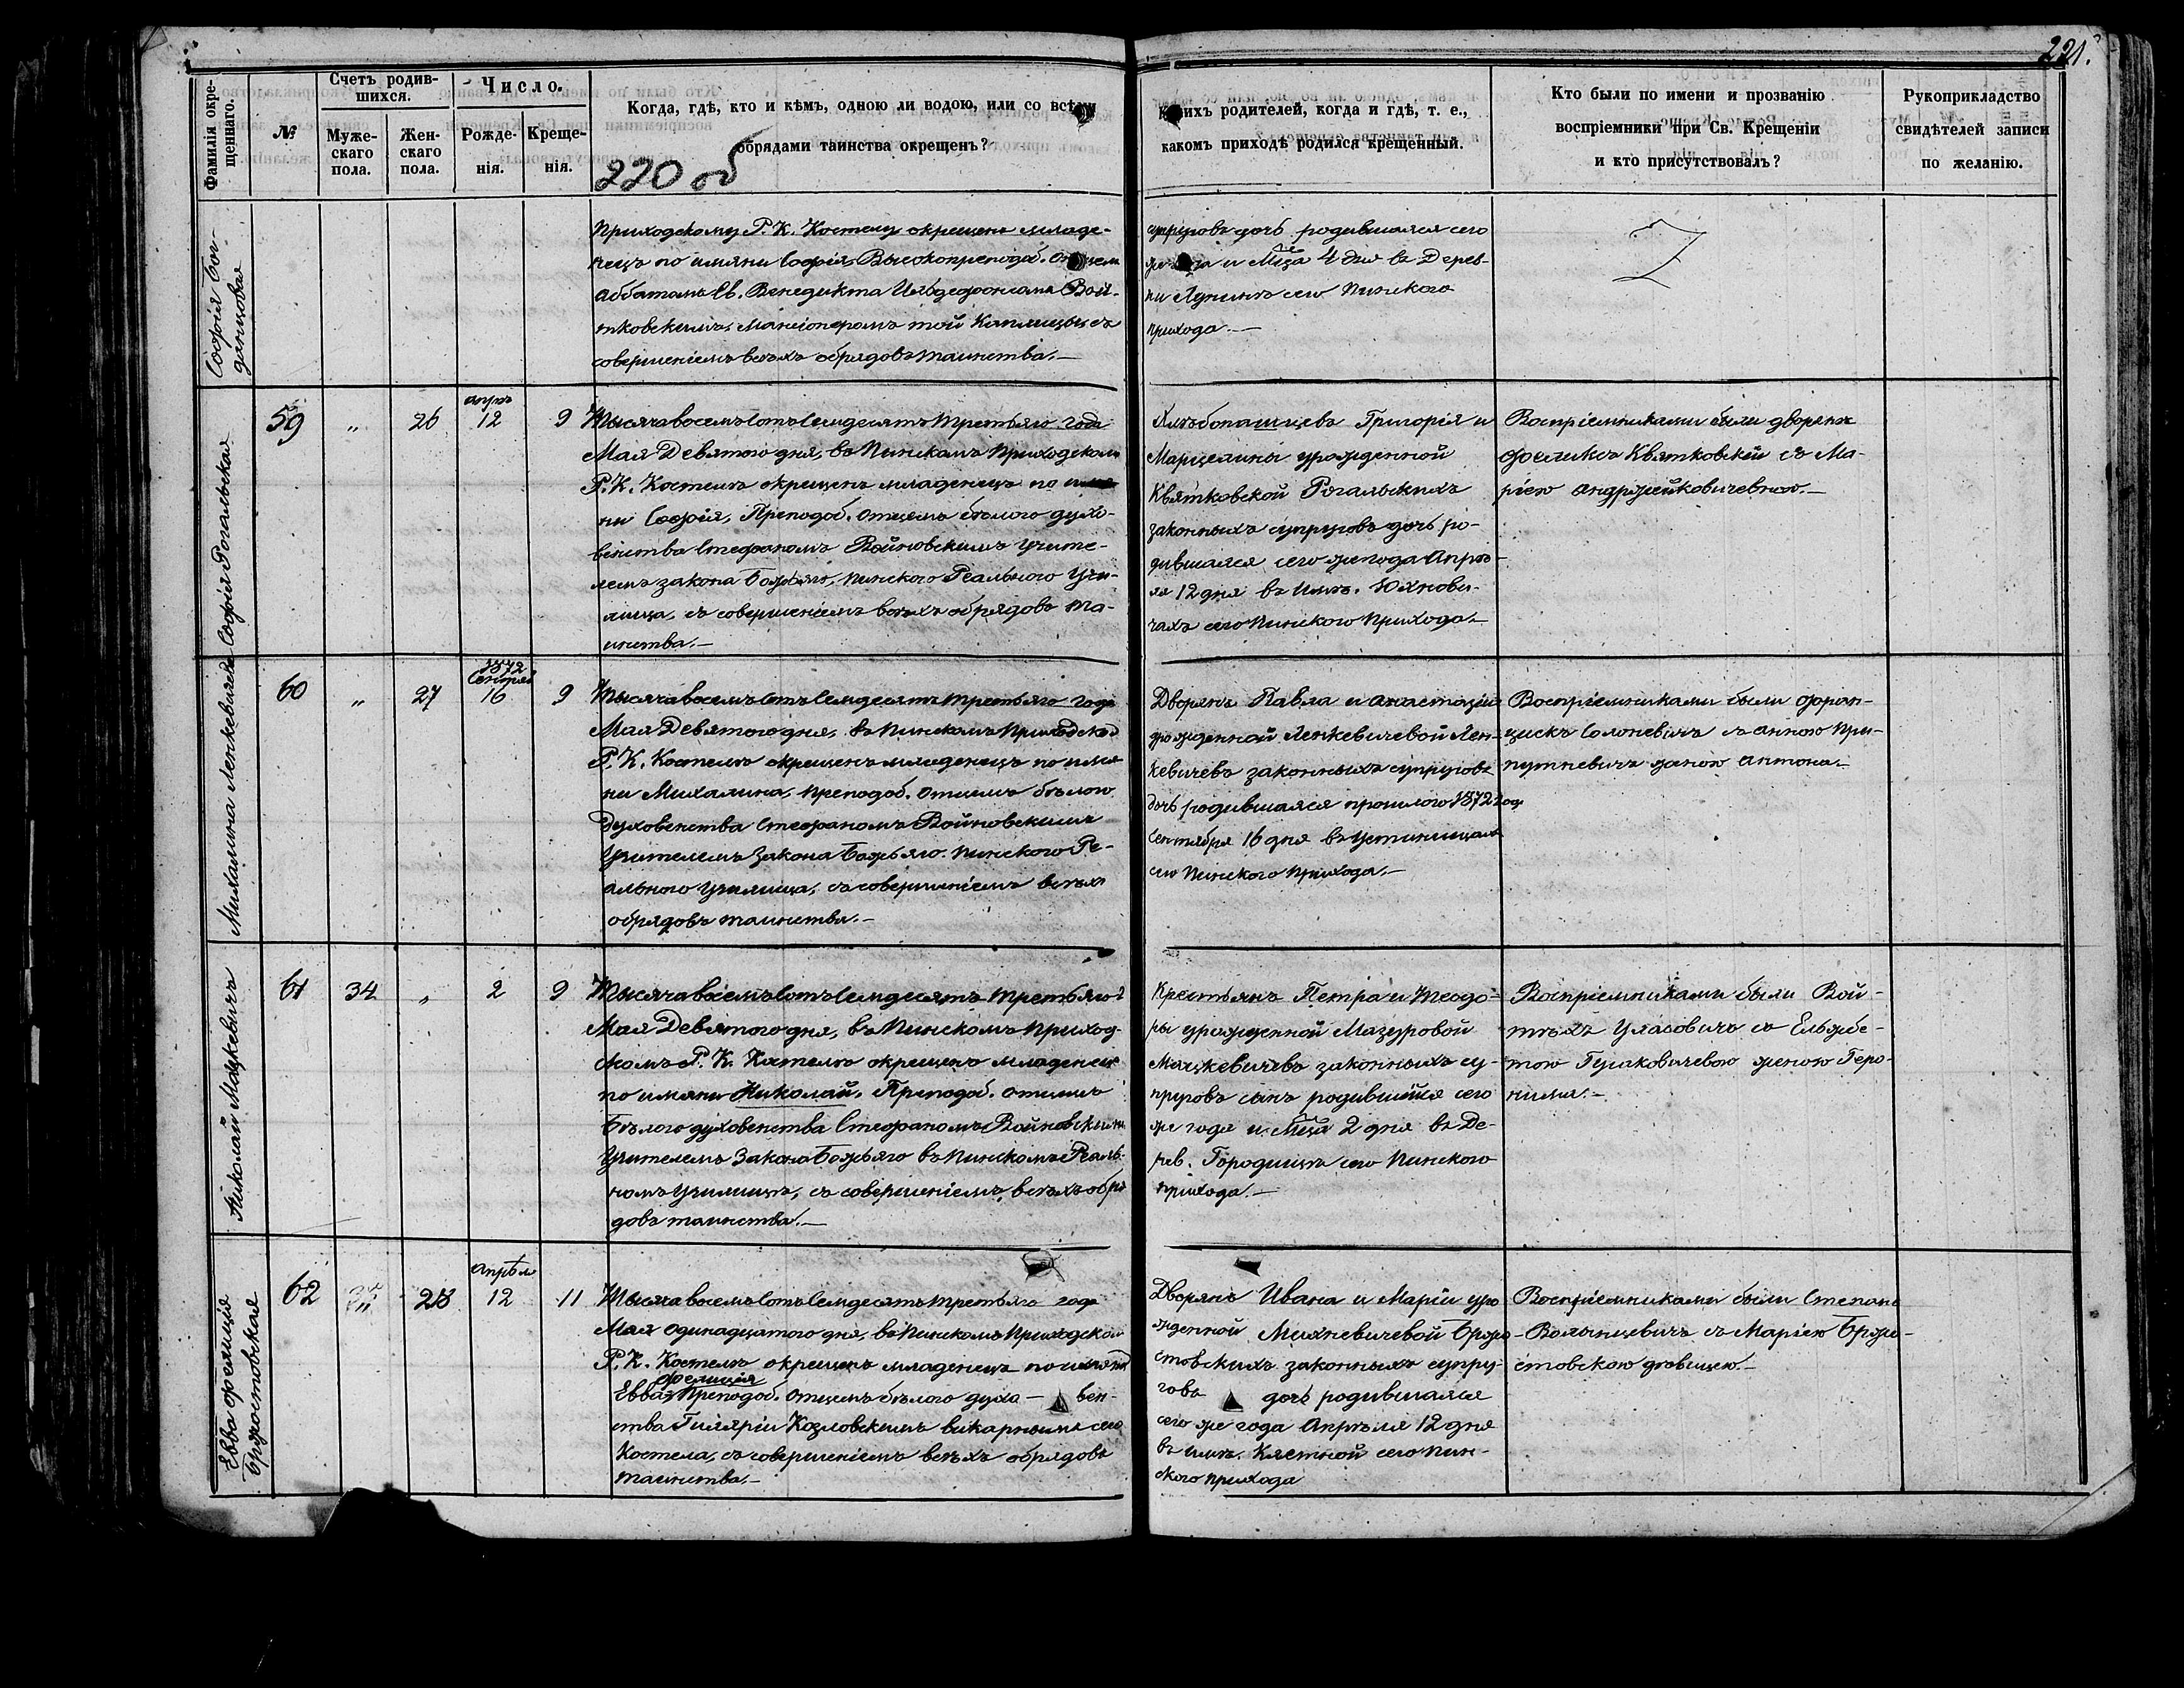 221.
Фамилія окре-
щеннаго.
№
Счетъ родив-
шихся.
Муже-
скаго
пола.
Жен-
скаго
пола.
Число.
Рожде-
нія.
Креще-
нія.
Когда, гдѣ, кто и кѣмъ, одною ли водою, или со всѣми
обрядами таинства окрещенъ?
220 об
Какихъ родителей, когда и гдѣ, т. е.,
какомъ приходѣ родился крещенный.
Кто были по имени и прозванію
воспріемники при Св. Крещеніи
и кто присутствовалъ?
Рукоприкладство
свидѣтелей записи
по желанію.
Софія Бог-
дановая
приходскому Р. К. Костелу окрещенъ младе-
нецъ по имяни Софія, Высокопрепод. Отцем
Аббатомъ Св. Венедикта Ильдефонсомъ Вой-
тковскимъ, Мансіонеромъ той Каплицы съ
совершеніемъ всѣхъ обрядовъ таинства.—
супруговъ дочь родившаяся сего
же года и Мца 4 дня въ Дерев-
ни Лунинъ сего Пинского
прихода.—
Софія Рогальская
59
"
26
апрѣ
12
9
Тысяча восемъ сотъ семдесятъ третьяго года
Мая Девятого дня, въ Пинскомъ Приходском
Р. К. Костелѣ окрещенъ младенецъ по имя
ни Софія, Преподоб. Отцемъ бѣлого духо-
венства Стефаномъ Войновскимъ учите-
лемъ закона Божьяго, Пинского Реального Учи-
лища, съ совершеніемъ всѣхъ обрядовъ та-
инства.—
Хлѣбопашцевъ Григорія и
Марцелины урожденной
Квятковской Рогальскихъ
законныхъ супруговъ дочь ро-
дившаяся сего же года Апрѣ-
ля 12 дня въ Имѣ. Юхнови-
чахъ сего Пинского Прихода.—
Воспріемниками были дворяне
Феликсъ Квятковскій съ Ма-
ріею Андржейковичевною.—
Михалина Ленкевичева
60
"
27
1872
Сентября
16
9
Тысяча восемъ сотъ семдесятъ третьяго года
Мая Девятого дня, въ Пинскомъ Приходском
Р. К. Костелѣ окрещенъ младенецъ по имя
ни Михалина, Преподоб. Отцемъ бѣлого
Духовенства Стефаномъ Войновскимъ
Учителемъ Закона Божьяго Пинского Ре-
ального Училища, съ совершеніемъ всѣхъ
обрядовъ таинства.—
Дворянъ Павла и Анастазіи
урожденной Ленкевичевой Лен-
кевичевъ законныхъ супруговъ
дочь родившаяся прошлого 1872 год
Сентября 16 дня въ
сего Пинского Прихода.—
Воспріемниками были Фран-
цискъ Солоневичъ съ Анною При-
путневичъ женою Антона.—
Николай Мацкевичъ
61
34
"
2
9
Тысяча восемъ сотъ семдесятъ третьяго г
Мая Девятого дня, въ Пинскомъ Приход-
скомъ Р. К. Костелѣ окрещенъ младенецъ
по имяни Николай, Преподоб. Отцемъ
Бѣлого духовенства Стефаномъ Войновскимъ
Учителемъ Закона Божьяго въ Пинскомъ Реаль-
номъ Училищѣ, съ совершеніемъ всѣхъ обря
довъ таинства.—
Крестьянъ Петра и Теодо-
ры урожденной Мазуровой
Мацкевичевъ законныхъ су-
пруговъ сынъ родившійся сего
же года и Мца 2 дня въ Де-
рев. Городищѣ сего Пинского
прихода.—
Воспріемниками были Вой-
тѣхъ Уласовичъ съ Ельжбе-
тою Гусаковичевою женою Геро-
нима.—
Евва Фелиція
Бржостовская
62
28
Апрѣля
12
11
Тысяча восемъ сотъ семдесятъ третьяго года
Мая одинадцатого дня, въ Пинскомъ Приходском
Р. К. Костелѣ окрещенъ младенецъ по имяни
Фелиція
Евва, Преподоб. Отцемъ бѣлого духо— вен-
ства Гиляріи Козловскимъ викарнымъ сего
Костела, съ совершеніемъ всѣхъ обрядовъ
таинства.—
Дворянъ Ивана и Маріи уро
жденной Михневичевой Бржо-
стовскихъ законныхъ супру-
говъ дочь родившаяся
сего же года Апрѣля 12 дня
въ имѣ. Клетной сего Пин-
ского прихода
Воспріемниками были Степанъ
Волынцевичъ съ Маріею Бржо-
стовскою дѣвицею.—